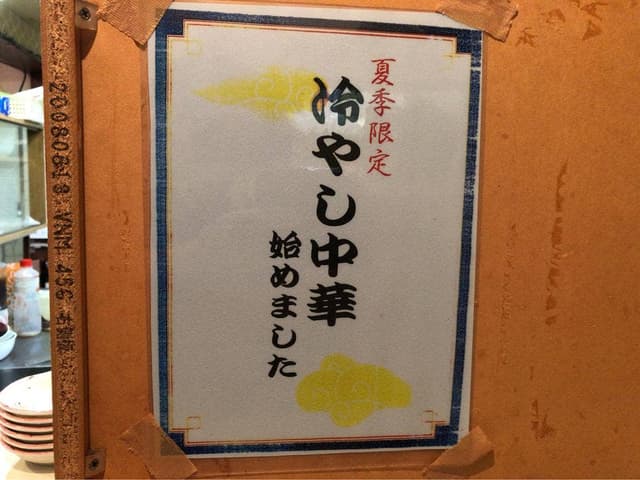 夏季限定
冷やし中華
始めました
20080813 VNM 45G